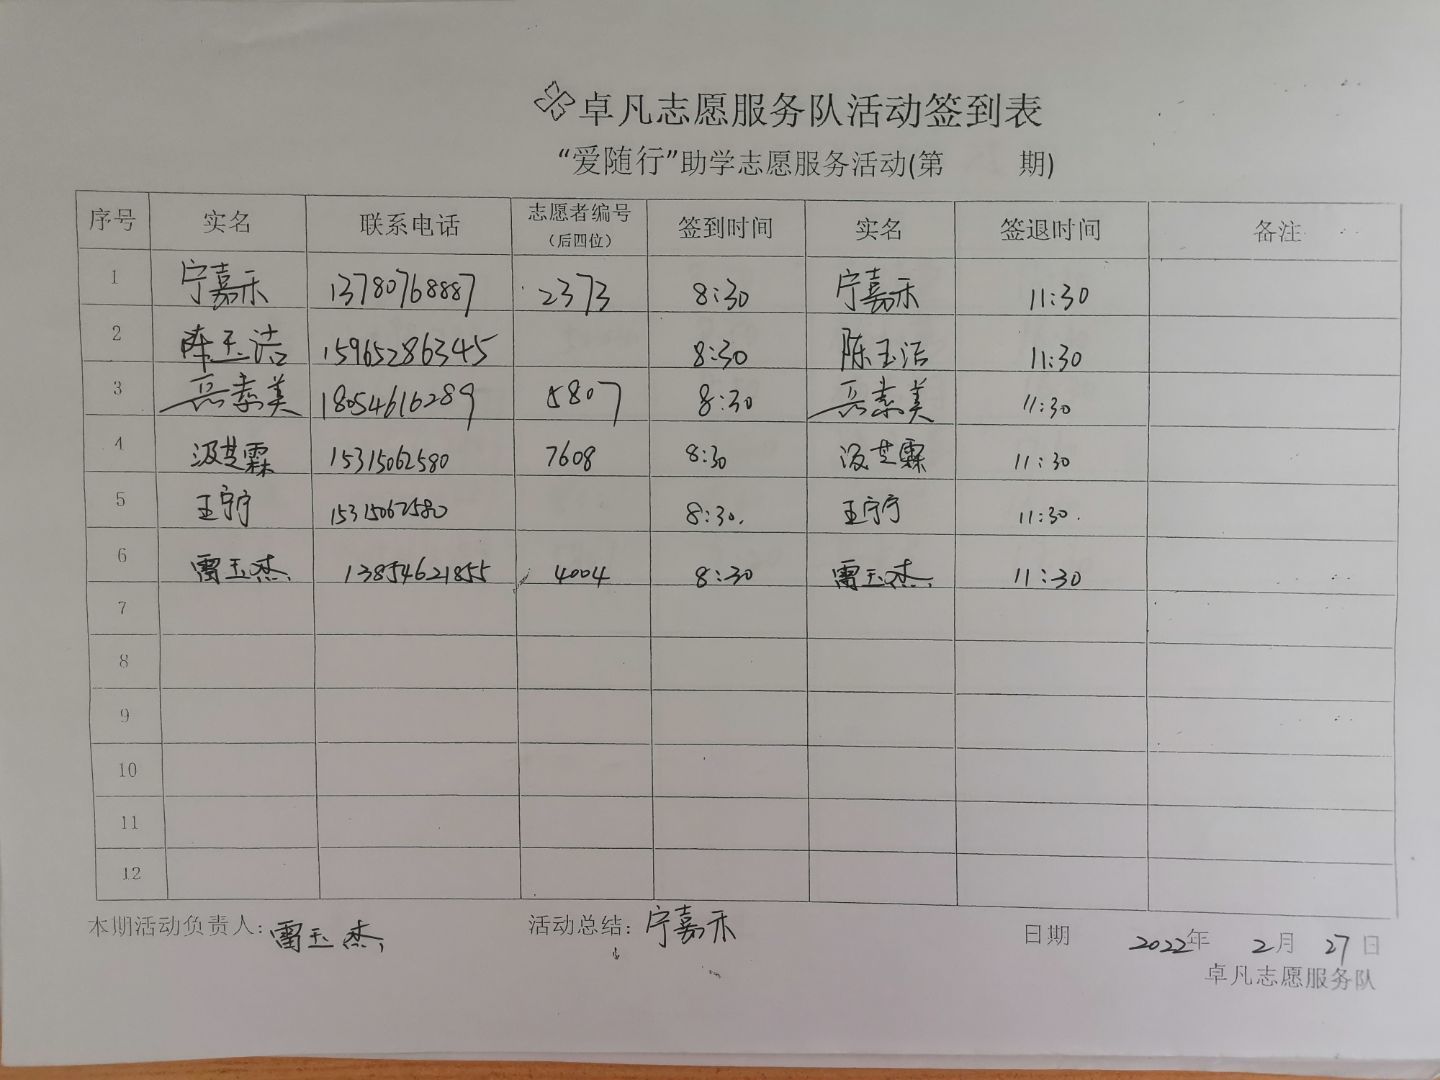 卓凡志愿服务队活动签到表
“爱随行”助学志愿服务活动(第 期)
序号 实名 联系电话 志愿者编号 (后四位) 签到时间 实名 签退时间 备注
1 宁嘉禾 13780768887 2373 8:30 宁嘉禾 11:30
2 陈玉洁 15965286345 8:30 陈玉洁 11:30
3 岳素美 18054616289 5807 8:30 岳素美 11:30
4 汲芝霖 15315062580 7608 8:30 汲芝霖 11:30
5 王宁宁 15315062580 8:30. 王宁宁 11:30.
6 雷玉杰 13854621855 4004 8:30 雷玉杰 11:30
7
8
9
10
11
12
本期活动负责人: 雷玉杰 活动总结: 宁嘉禾 日期 2022年 2月 27日
卓凡志愿服务队